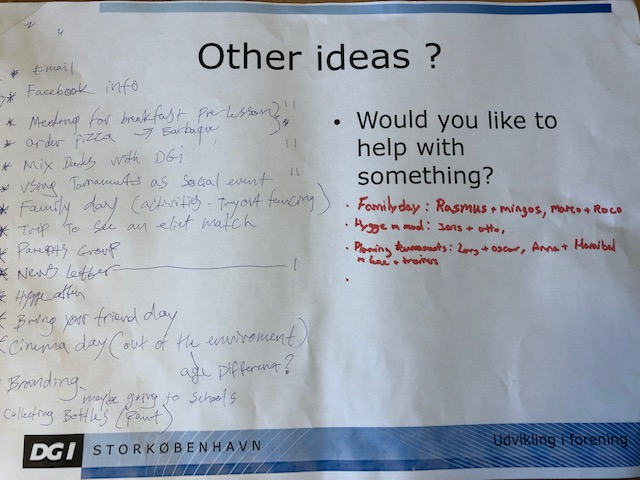 Other ideas ?
* Email
* Facebook info
* Meeting for breakfast pre lesson
* order pizza → Barbaque
* Mix Dates with DGI
* Using Tornaments as social event
* Family day (activities - Tryout fencing)
* Trip To see an eliet match
* Parents Group
* News Letter
* Hygge aften
* Bring your friend day
* Cinema day (out of the enviroment)
age Different?
Branding maybe going to schools
Collecting Bottles (Pant)
• Would you like to
help with
something?
• Family day : Rasmus + mingos, Marco + Roco
• Hygge m mad : Jens + otto,
• Planning tournaments : Lars + oscar, Anna + Hannibal
+ trainers
DGI STORKØBENHAVN
Udvikling i forening